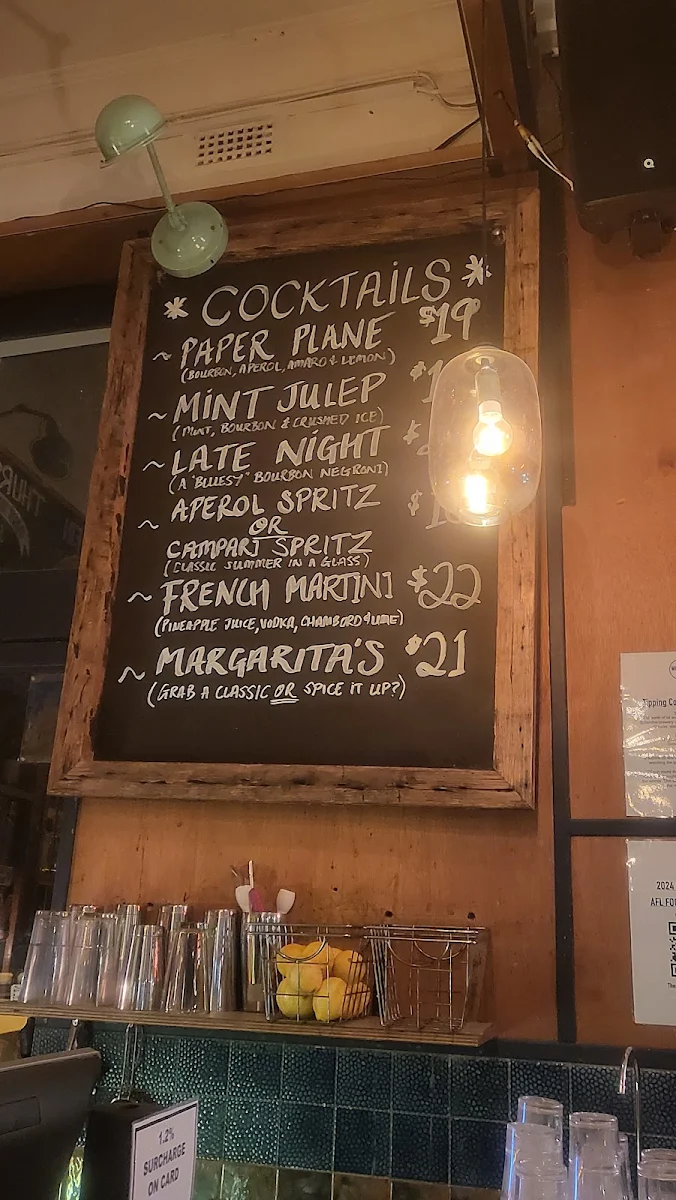 * COCKTAILS *
~ PAPER PLANE $19
(BOURBON, APEROL, AMARO & LEMON)
~ MINT JULEP
(MINT, BOURBON & CRUSHED ICE)
~ LATE NIGHT
(A "BLUESY" BOURBON NEGRONI)
~ APEROL SPRITZ
OR
CAMPARI SPRITZ
(CLASSIC SUMMER IN A GLASS)
~ FRENCH MARTINI $22
(PINEAPPLE JUICE, VODKA, CHAMBORD & LIME)
~ MARGARITA'S $21
(GRAB A CLASSIC OR SPICE IT UP?)
Tipping
2024
AFL
1.2%
SURCHARGE
ON CARD